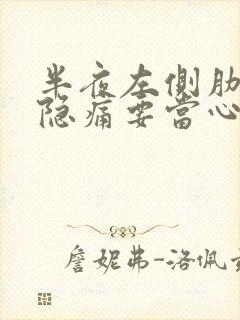 半夜左侧肋
隐痛要当心
詹妮弗-洛佩兹